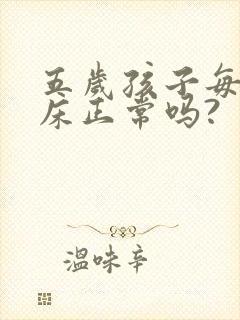 五歲孩子每
床正常吗?
温味辛